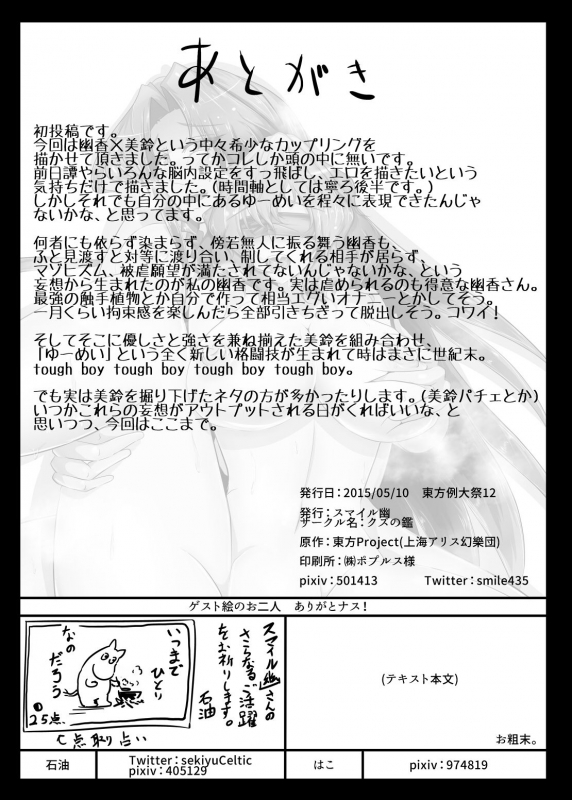 あとがき
初投稿です。
今回は幽香×美鈴という中々希少なカップリングを
描かせて頂きました。ってかコレしか頭の中に無いです。
前日譚やらいろんな脳内設定をすっ飛ばし、エロを描きたいという
気持ちだけで描きました。(時間軸としては寧ろ後半です。)
しかしそれでも自分の中にあるゆーめいを程々に表現できたんじゃ
ないかな、と思ってます。
何者にも依らず染まらず、傍若無人に振る舞う幽香も、
ふと見渡すと対等に渡り合い、制してくれる相手が居らず、
マゾヒズム、被虐願望が満たされてないんじゃないかな、という
妄想から生まれたのが私の幽香です。実は虐められるのも得意な幽香さん。
最強の触手植物とか自分で作って相当エグいオナニーとかしてそう。
一月くらい拘束感を楽しんだら全部引きちぎって脱出しそう。コワイ!
そしてそこに優しさと強さを兼ね揃えた美鈴を組み合わせ、
「ゆーめい」という全く新しい格闘技が生まれて時はまさに世紀末。
tough boy tough boy tough boy tough boy。
でも実は美鈴を掘り下げたネタの方が多かったりします。(美鈴パチェとか)
いつかこれらの妄想がアウトプットされる日がくればいいな、と
思いつつ、今回はここまで。
発行日:2015/05/10 東方例大祭12
発行:スマイル幽
サークル名:クズの鑑
原作:東方Project(上海アリス幻樂団)
印刷所:㈱ポプルス様
pixiv:501413 Twitter:smile435
ゲスト絵のお二人 ありがとナス!
スマイル幽さんの
さらなるご活躍
をお祈りします。
石油
いつまで
ひとり
なの
だろう
①
25点
↑点取り占い
(テキスト本文)
お粗末。
石油
Twitter:sekiyuCeltic
pixiv:405129
はこ
pixiv:974819